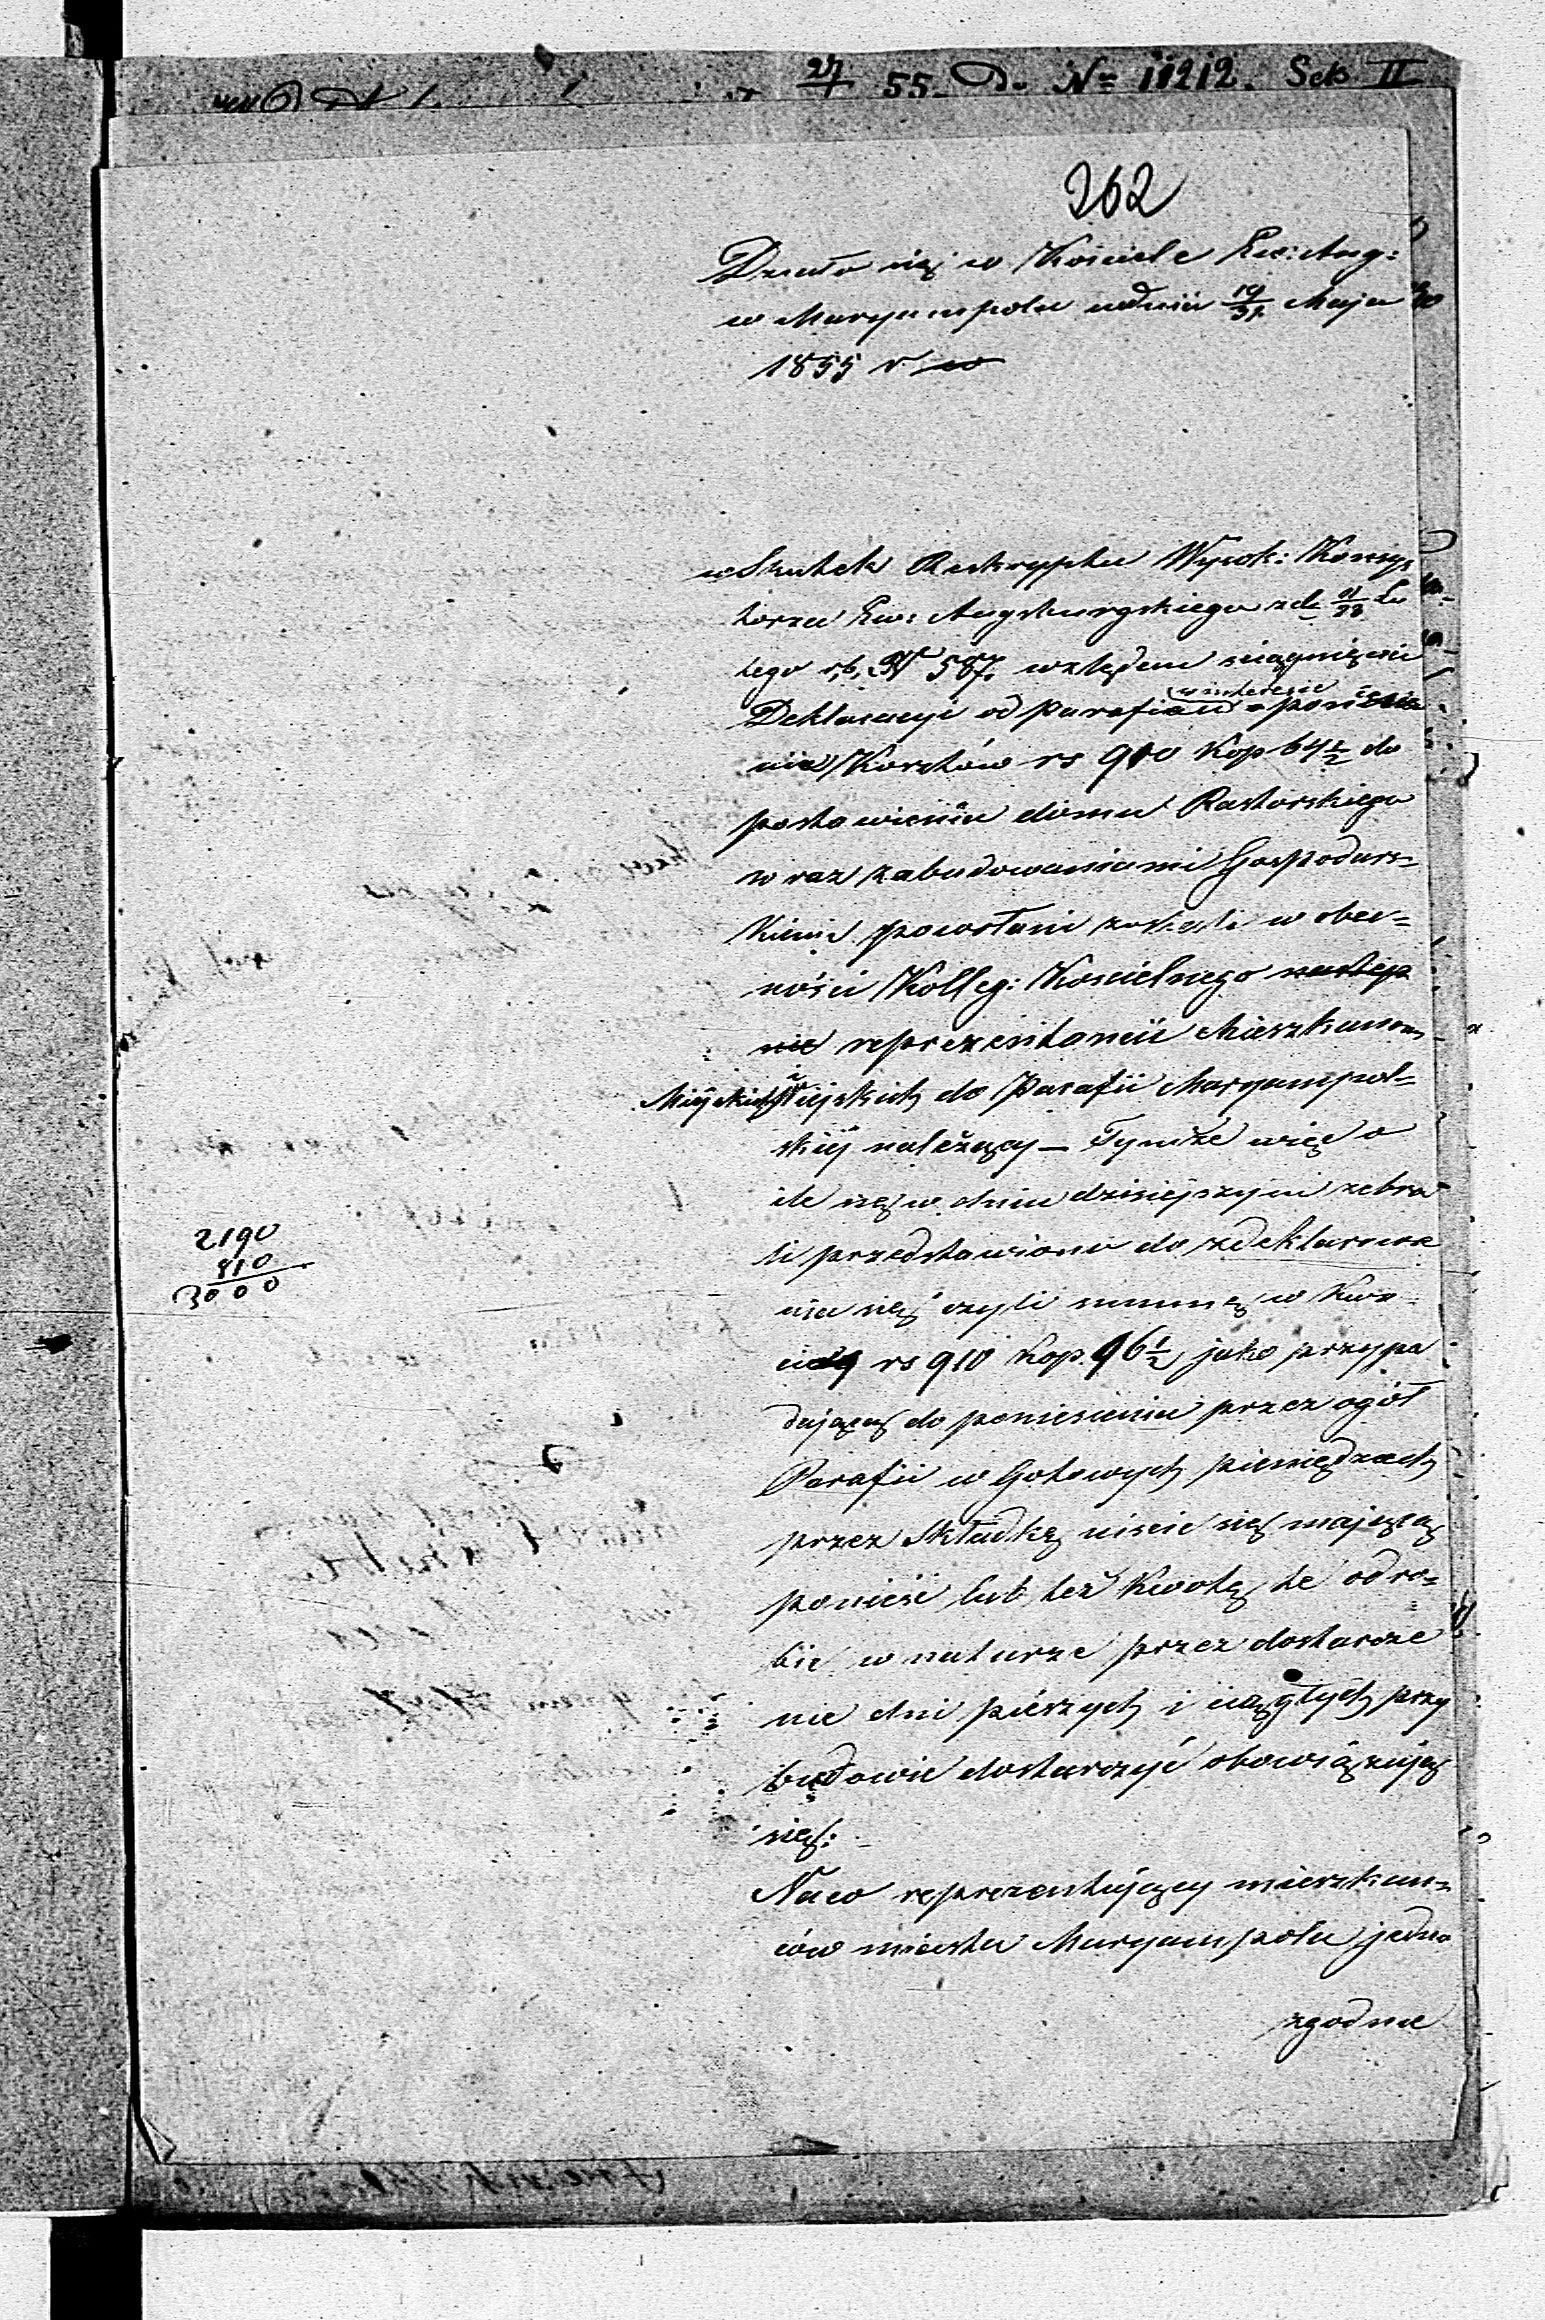 27/1 55. D. No 11212. Sek II
262
Działo się w Kościele Ew: Aug:
w Maryampolu na dniu 19/31 Maja
1855 r w
w Skutek Reskryptu Wysok: Konsys
torza Ew: Augsburgskiego z d. 11/23 Lu
tego r, b, N 587. względem ściągnięcia
Deklaracyi od Parafian w interesie poniesie
nia Kosztów rs 910 Kop 64½ do
postawienia domu Pastorskiego
w raz zabudowaniami Gospodars-
kiemi powołani zostali w obec-
ności Kolleg: Koscielnego następ
nie reprezentanci Mieszkancow
Miejskich i Wiejskich do Parafii Maryampol-
skiej należący — Tymże więc o
ile się w dniu dzisiejszym zebra
li przedstawiono do zdeklarowa
nia się czyli summę w kwo
cie rs 910 Kop. 96½ jako przypa
dającą do poniesienia przez ogół
Parafii w Gotowych pieniędzach
przez Składkę uiscic się mającą
ponieść lub też Kwotę tę odro-
bić w naturze przez dostarcze
nie dni pieszych i ciągłych przy
budowie dostarczyć obowiązuję
się:
Na co reprezentujący mieszkan-
ców miasta Maryampola jedno
zgodnie
2190
810
3000